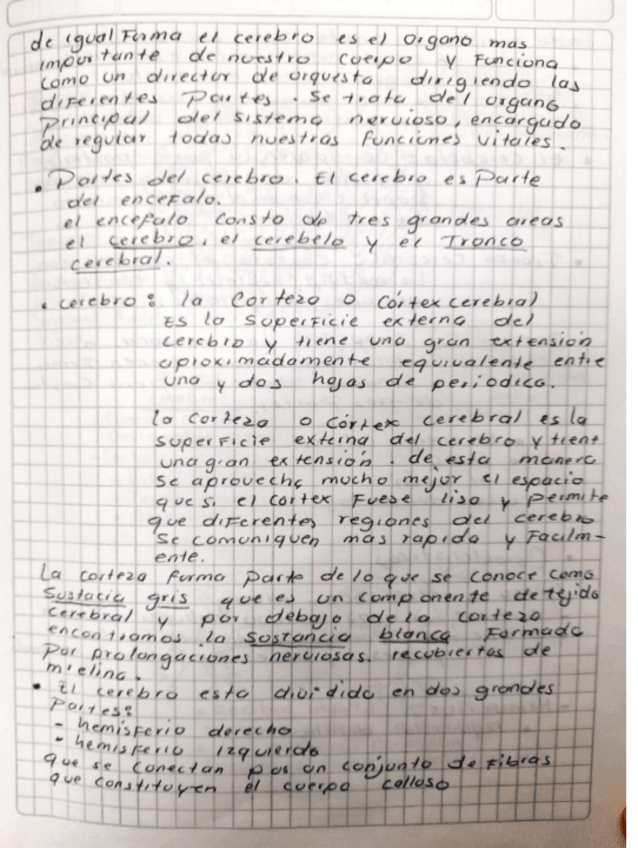 de igual Forma el cerebro es el Organo mas
importante de nuestro cuerpo y Funciona
como un director de orquesta dirigiendo las
diferentes Partes. Se trata del organo
Principal del sistema nervioso, encargado
de regular todas nuestras Funciones vitales.
• Partes del cerebro. El cerebro es Parte
del encefalo.
el encefalo consta de tres grandes areas
el cerebro, el cerebelo y el Tronco
cerebral.
• cerebro: la Corteza o Córtex cerebral
Es la Superficie externa del
cerebro y tiene una gran extensión
aproximadamente equivalente entre
una y dos hojas de periodico.
la corteza o córtex cerebral es la
superficie externa del cerebro y tiene
una gran extensión. de esta manera
se aproveche mucho mejor el espacio
que si el cortex Fuese liso y Permite
que diferentes regiones del cerebro
se comuniquen mas rapido y Facilm-
ente.
La corteza forma parte de lo que se conoce como
Sustacia gris que es un componente de tejido
cerebral y por debajo de la corteza
encontramos la Sostancia blanca Formada
por prolongaciones nerviosas. recubiertas de
mielina.
• El cerebro esta dividido en dos grandes
Partes:
- hemisferio derecho
- hemisferio izquierdo
que se conectan por un conjunto de Fibras
que constituyen el cuerpo calloso